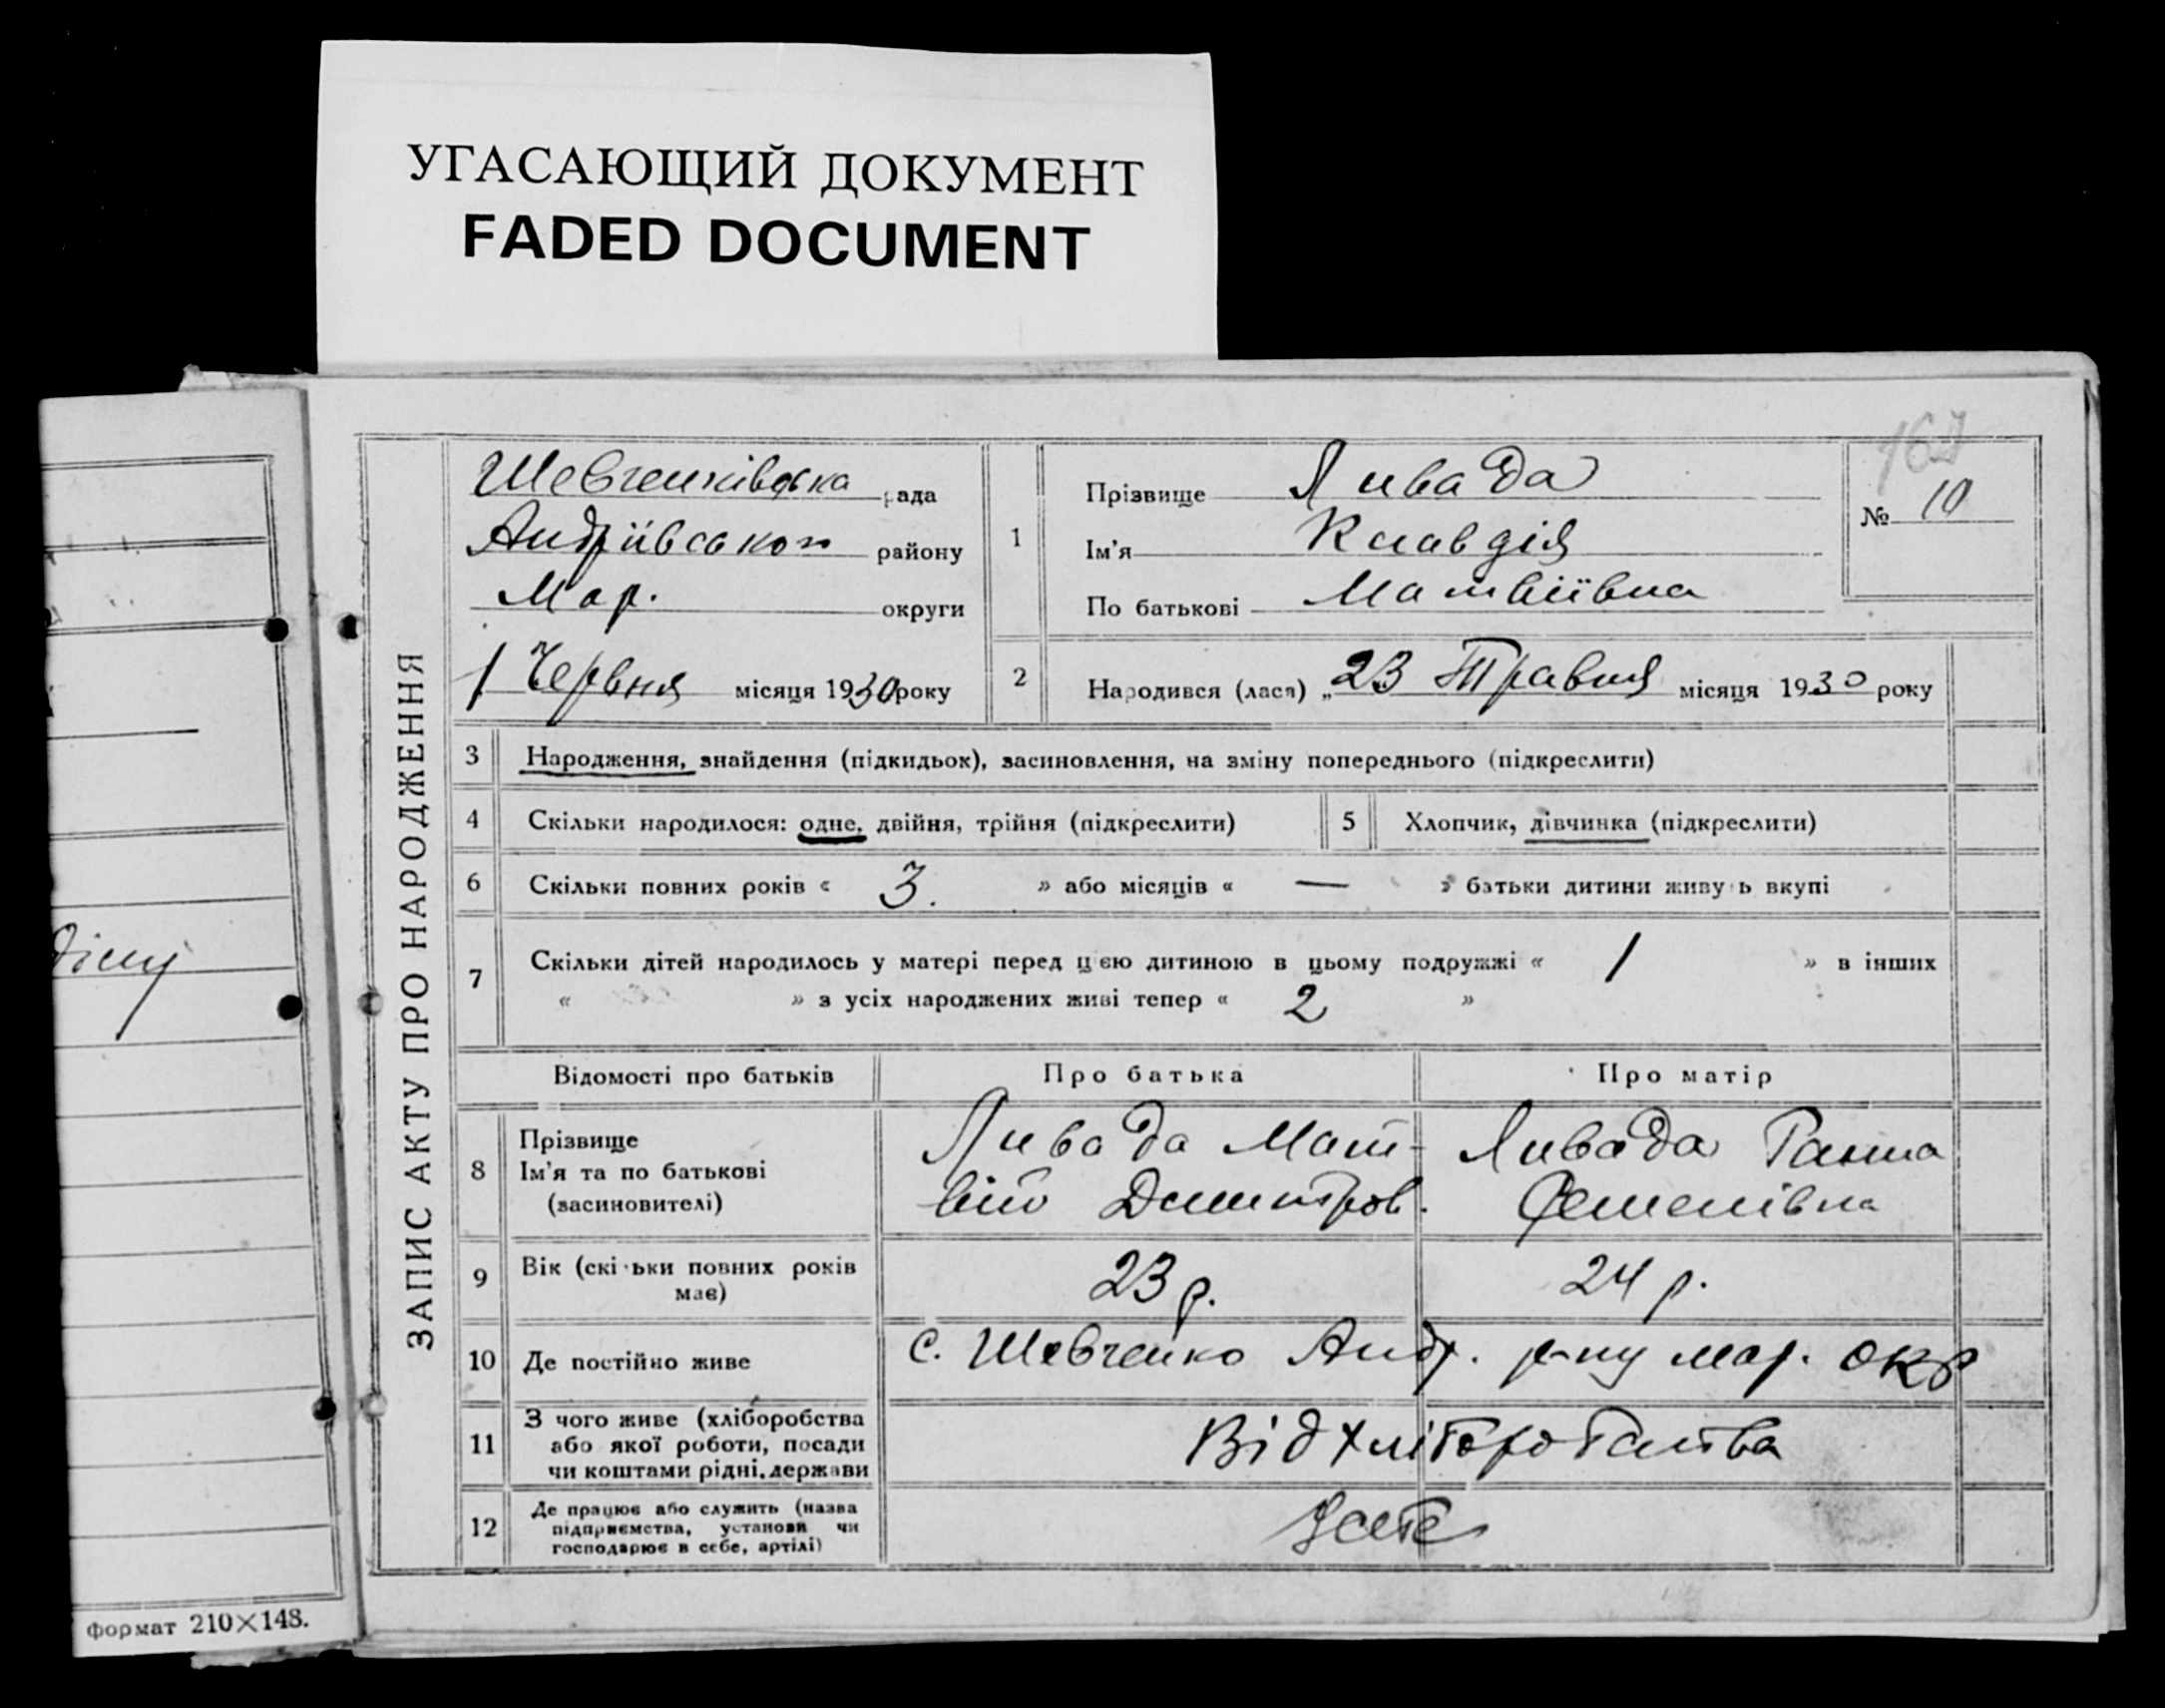 УГАСАЮЩИЙ ДОКУМЕНТ
FADED DOCUMENT
формат 210×148.
ЗАПИС АКТУ ПРО НАРОДЖЕННЯ
Шевченківська рада
Андріївського району
Мар. округи
1 Червня місяця 1930 року
1
Прізвище Ливада
Ім'я Клавдія
По батькові Матвіївна
167
№ 10
2
Народився (лася) „23 Травня місяця 1930 року
3 Народження, знайдення (підкидьок), засиновлення, на зміну попереднього (підкреслити)
4 Скільки народилося: одне, двійня, трійня (підкреслити) 5 Хлопчик, дівчинка (підкреслити)
6 Скільки повних років « 3. » або місяців « — » батьки дитини живуть вкупі
7 Скільки дітей народилось у матері перед цією дитиною в цьому подружжі « 1 » в інших
« » з усіх народжених живі тепер « 2 »
Відомості про батьків Про батька Про матір
8 Прізвище
Ім'я та по батькові
(засиновителі)
Ливада Мат-
вій Дмитров.
Ливада Ганна
Семенівна
9 Вік (скільки повних років
має)
23 р. 24 р.
10 Де постійно живе с. Шевченко Андр. р-ну мар. окр
11 З чого живе (хліборобства
або якої роботи, посади
чи коштами рідні, держави
Від хліборобства
12 Де працює або служить (назва
підприємства, установи чи
господарює в себе, артілі)